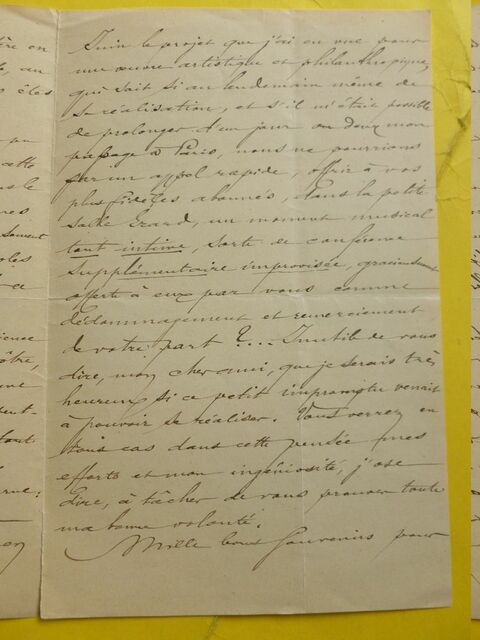 Juin le projet que j'ai en vue pour
une œuvre artistique et philanthropique,
qui sait si au lendemain même de
sa réalisation, et s'il m'était possible
de prolonger d'un jour ou deux mon
passage à Paris, nous ne pourrions
sur un appel rapide, offrir à vos
plus fidèles abonnés, dans la petite
salle Erard, un moment musical
tout intime, sorte de conférence
supplémentaire improvisée, gracieusement
offerte à eux par vous comme
dédommagement et remerciement
de votre part ?.... Inutile de vous
dire, mon cher ami, que je serais très
heureux si ce petit impromptu venait
à pouvoir se réaliser. Vous verrez en
tous cas dans cette pensée mes
efforts et mon ingéniosité, j'ose
dire, à tâcher de vous prouver toute
ma bonne volonté.
Mille bons souvenirs pour
ère en
au
êles
cette
le
souvent
ce
ience
ôtre,
peut-
tout